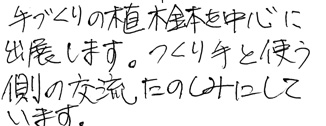 手づくりの植木鉢を中心に
出展します。つくり手と使う
側の交流たのしみにして
います。